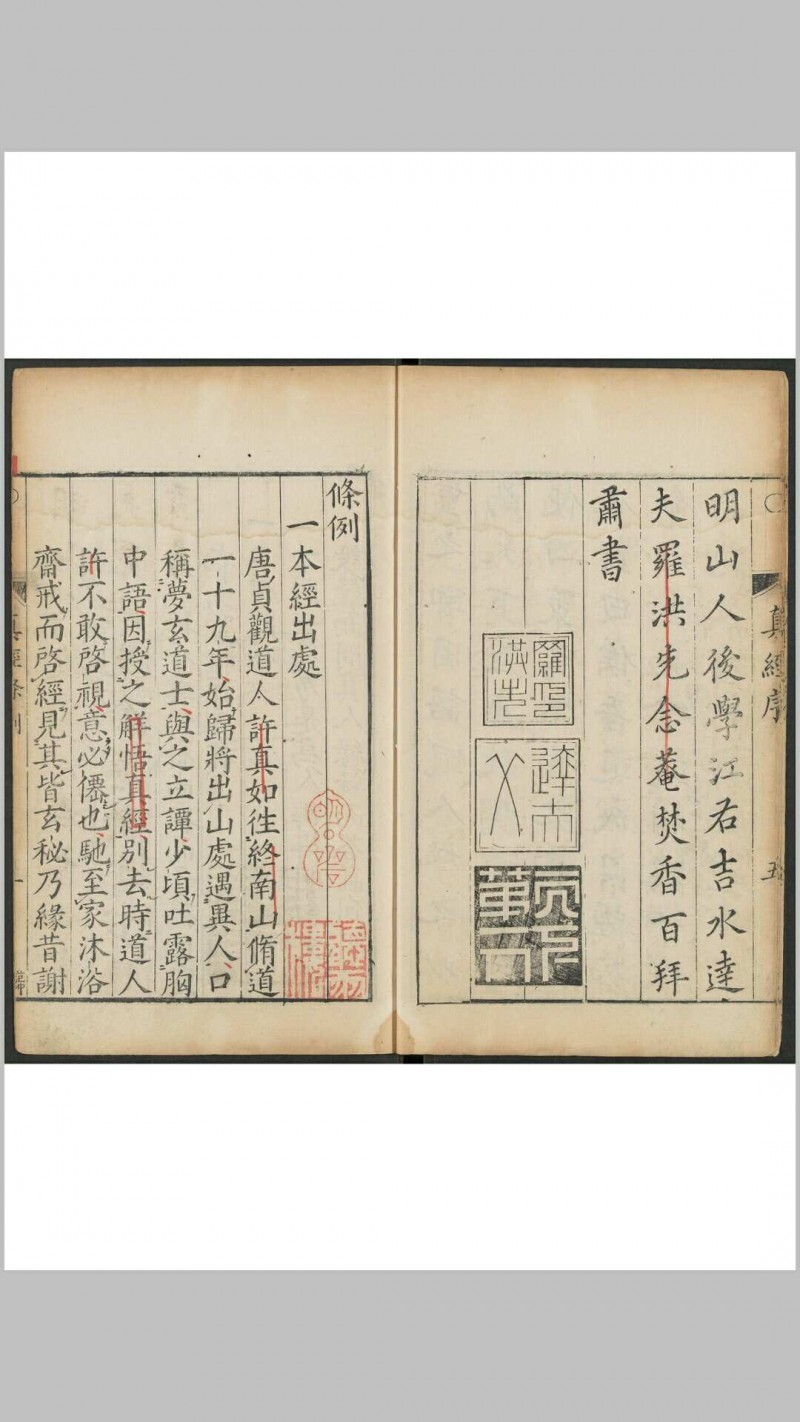 明山人後學江右吉水達
夫羅洪先念菴焚香百拜
肅書
羅洪先印
達夫
真經序
五
條例
一本經出處
唐貞觀道人許真如徃終南山脩道
一十九年始歸將出山處遇異人口
稱夢玄道士與之立譚少頃吐露胸
中語因授之解悟真經別去時道人
許不敢啓視意必僊也馳至家沐浴
齋戒而啓經見其皆玄秘乃緣昔謝
真經條例
一